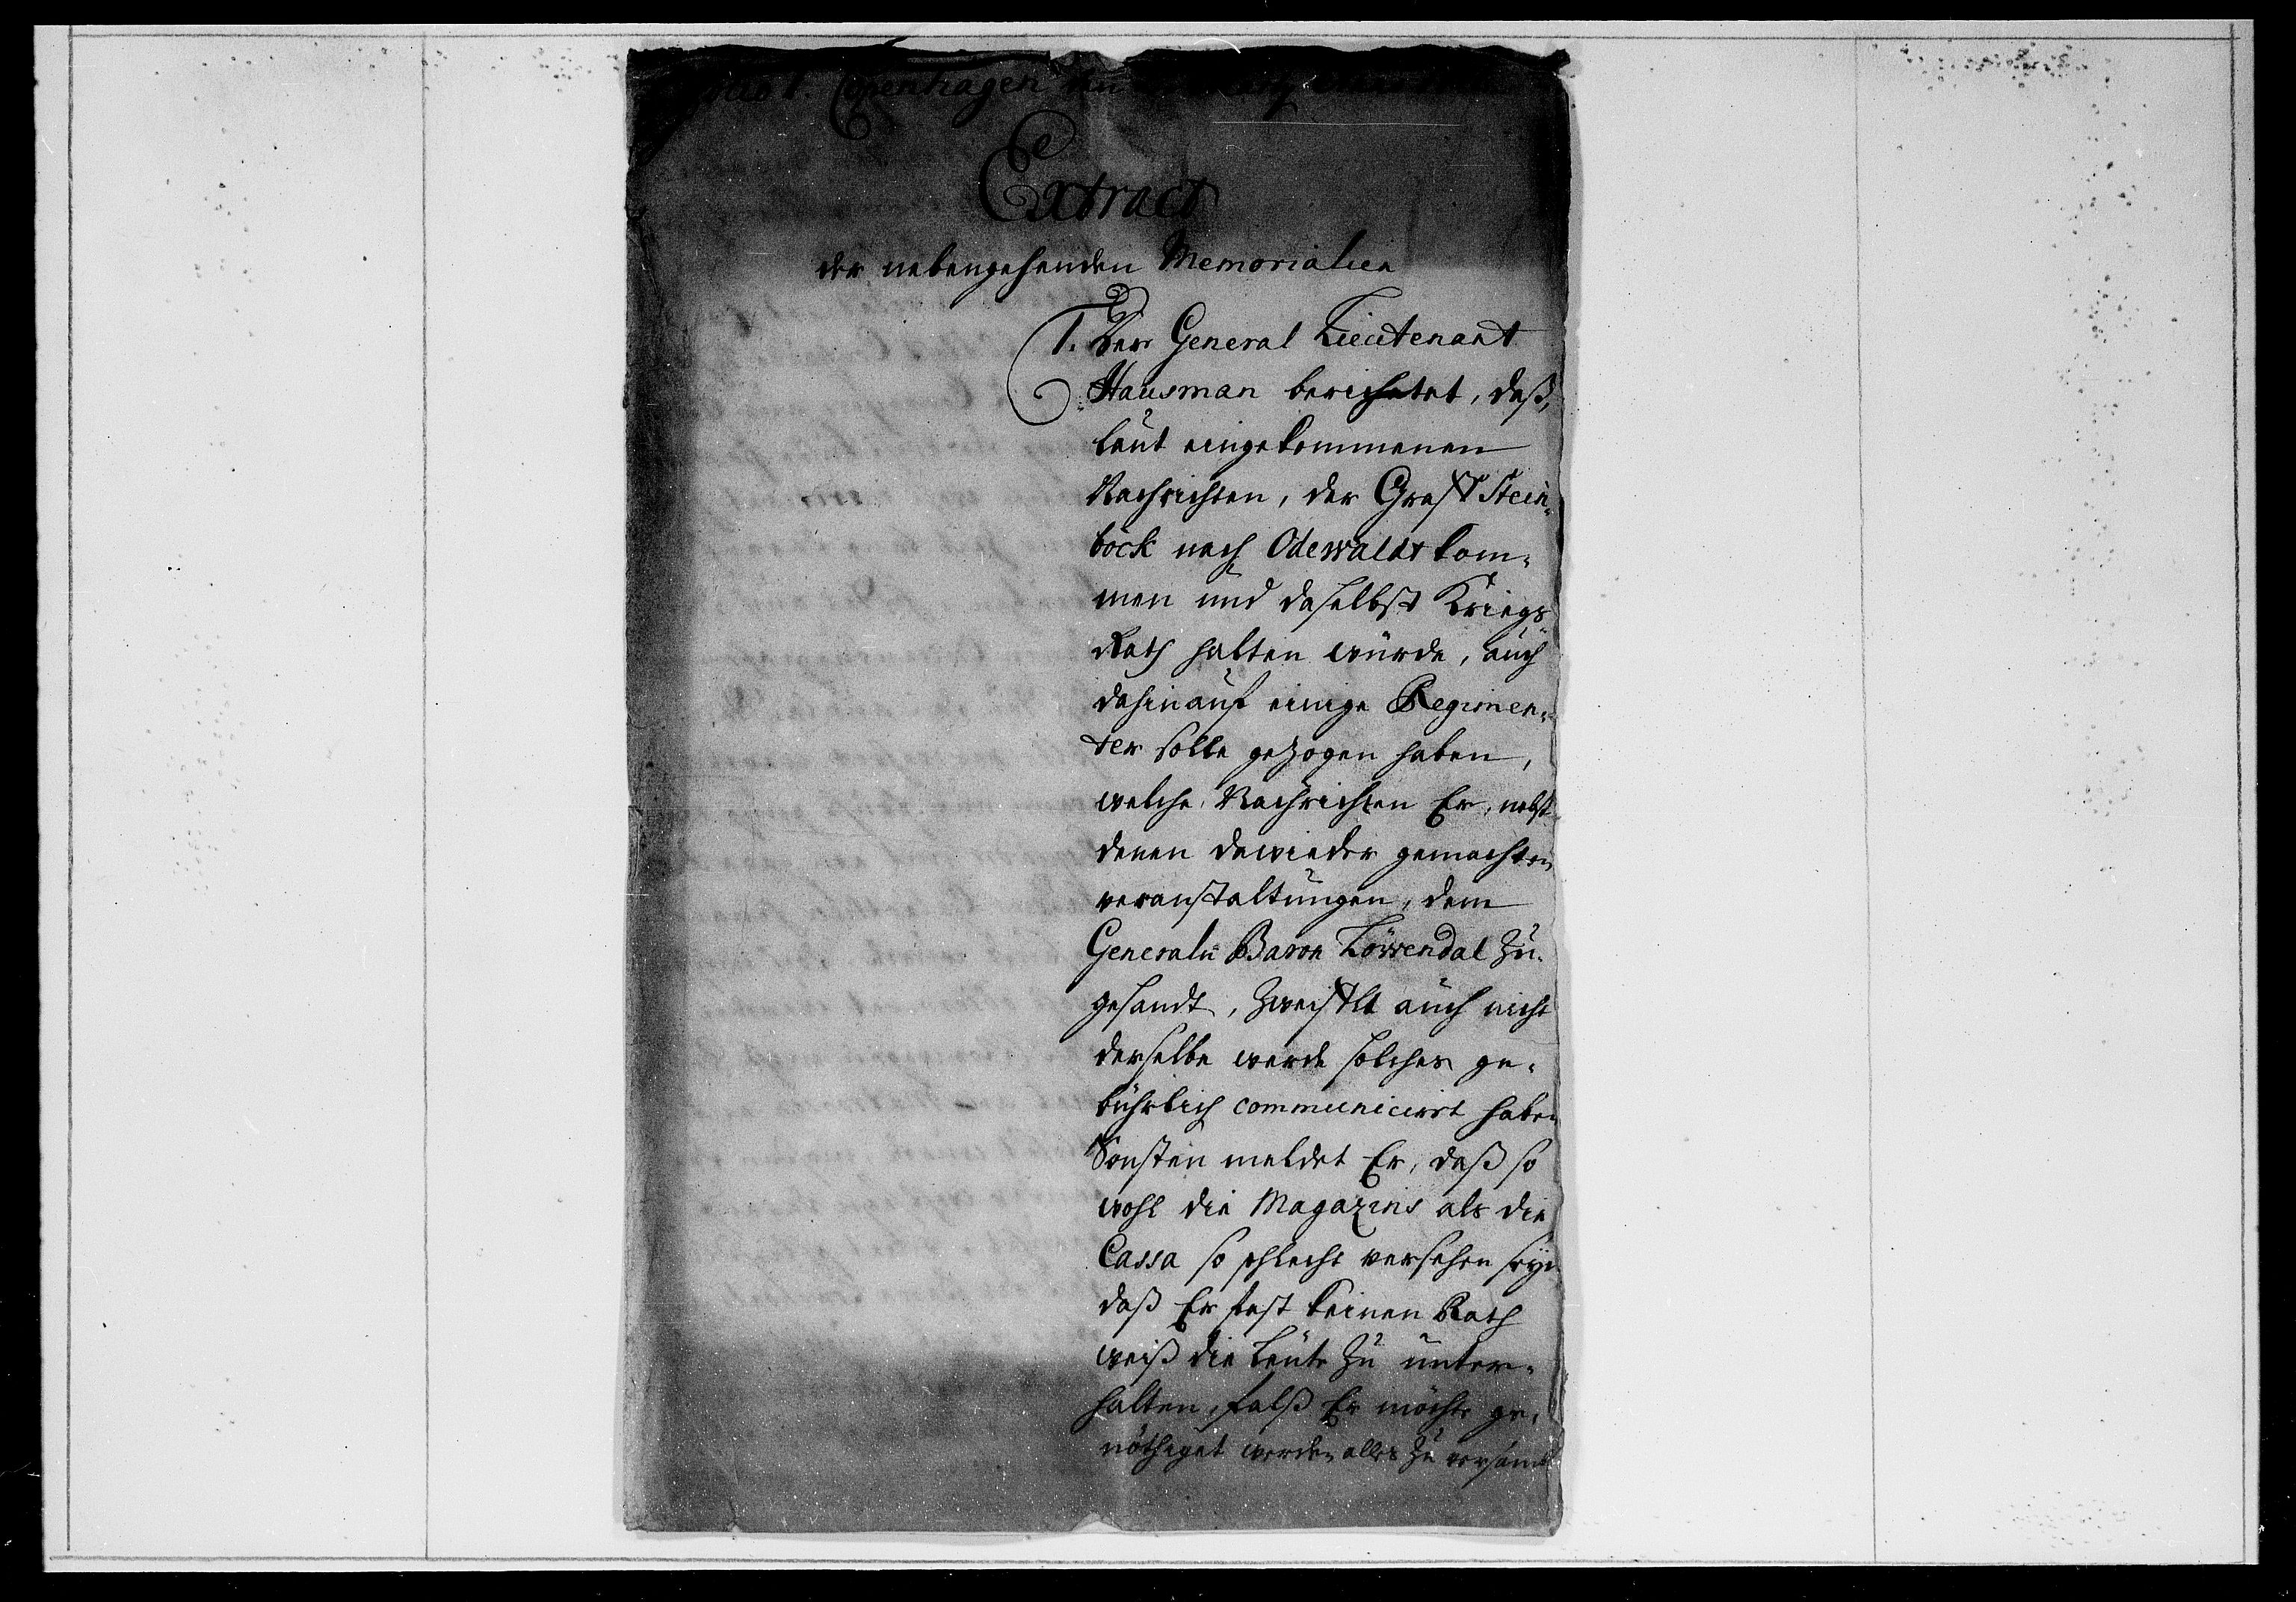 No 1. Copenhagen den
Extract
der nebengehenden Memorialien
1. Der General Lieutenant
Hausman berichtet, daß,
laut eingekommenen
Nachrichten, der Graff Stein-
bock nach Odewaldt kom-
men und daselbst Kriegs-
Rath halten würde, auch
dahinauf einige Regimen-
ter solle gezogen haben,
welche Nachrichten Er, nebst
denen dawieder gemachten
veranstaltungen, dem
Generaln Baron Löwendal zu-
gesandt, zweiffelt auch nicht
derselbe werde solches ge-
bührlich communicirt haben
Sonsten meldet Er, daß so
wohl die Magazins als die
Cassa so schlecht versehen seyn
daß Er fast keinen Rath
weiß die Leute zu unter-
halten, falß Er möchte ge-
nöthiget werden alles zu versaml